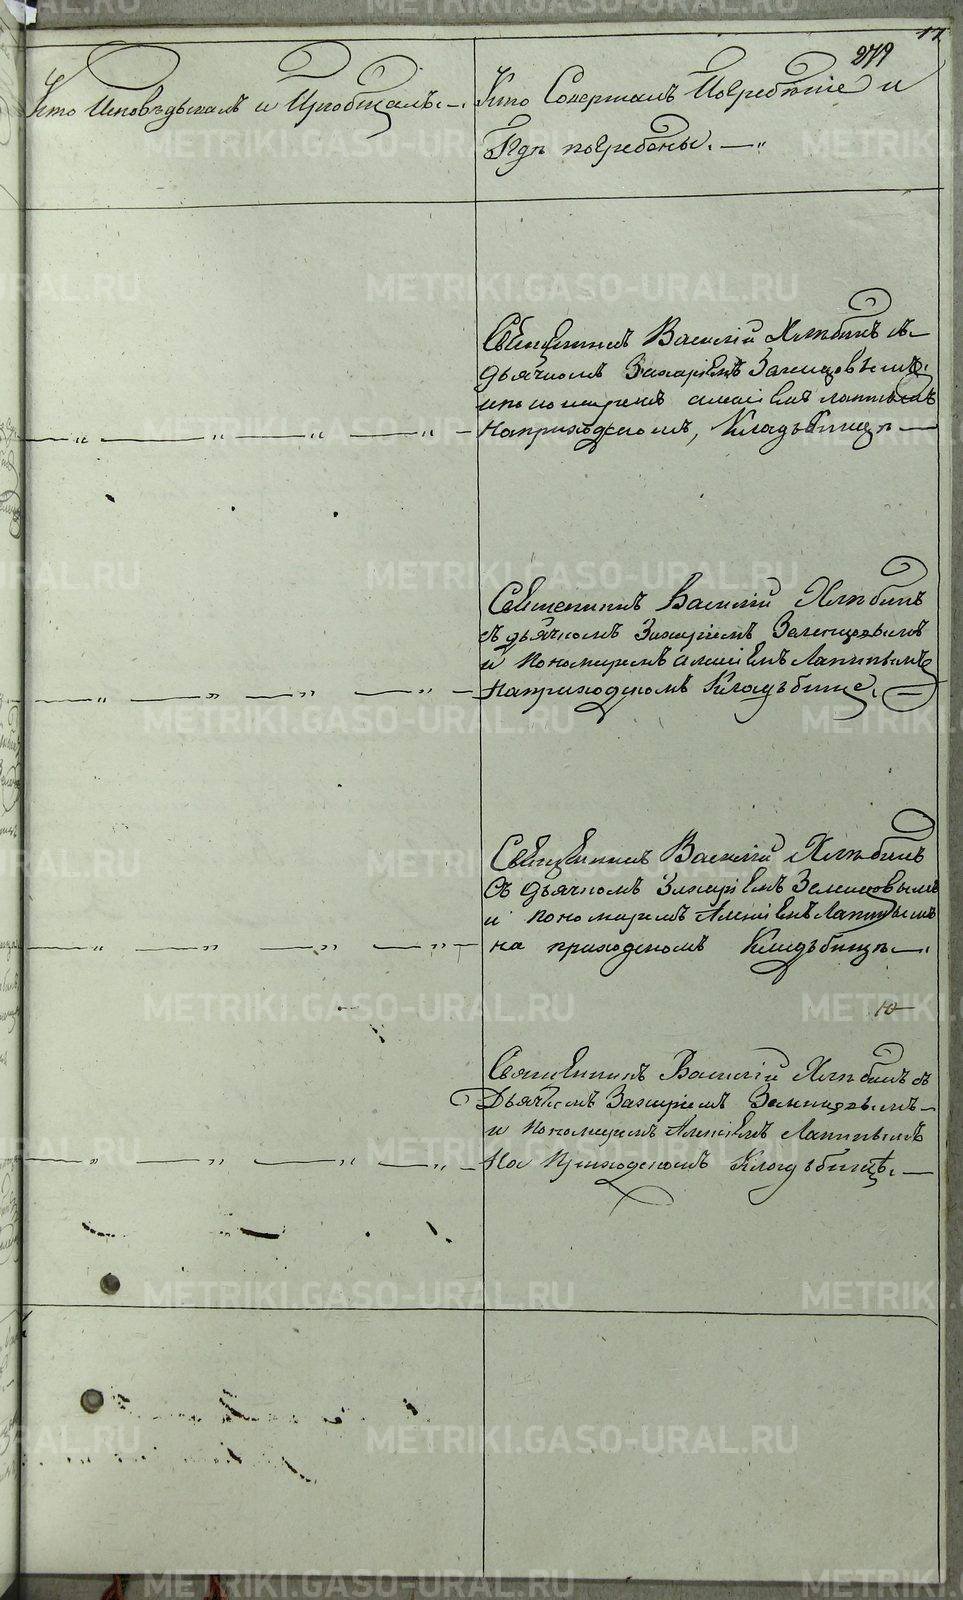 17
279
Кто Исповѣдывалъ и Приобщалъ.
Кто Совершалъ Погребѣніе и
Гдѣ погребены.
Священникъ Василій Хлѣбинъ съ
дьячкомъ Захаріемъ
и пономаремъ Алексіемъ Лапинымъ
на приходскомъ, Кладъбищѣ
Священникъ Василій Хлѣбинъ
съ дьячкомъ Захаріемъ
и пономаремъ Алексіемъ Лапинымъ
на приходскомъ Кладъбище.
Священникъ Василій Хлѣбинъ
Съ дьячкомъ Захаріемъ
и пономаремъ Алексіемъ Лапинымъ
на приходскомъ Кладъбищѣ.
10
Священникъ Василій Хлѣбинъ съ
Дьячкомъ Захаріемъ
и пономаремъ Алексіемъ Лапинымъ
На Приходскомъ Кладъбищѣ.
METRIKI.GASO-URAL.RU